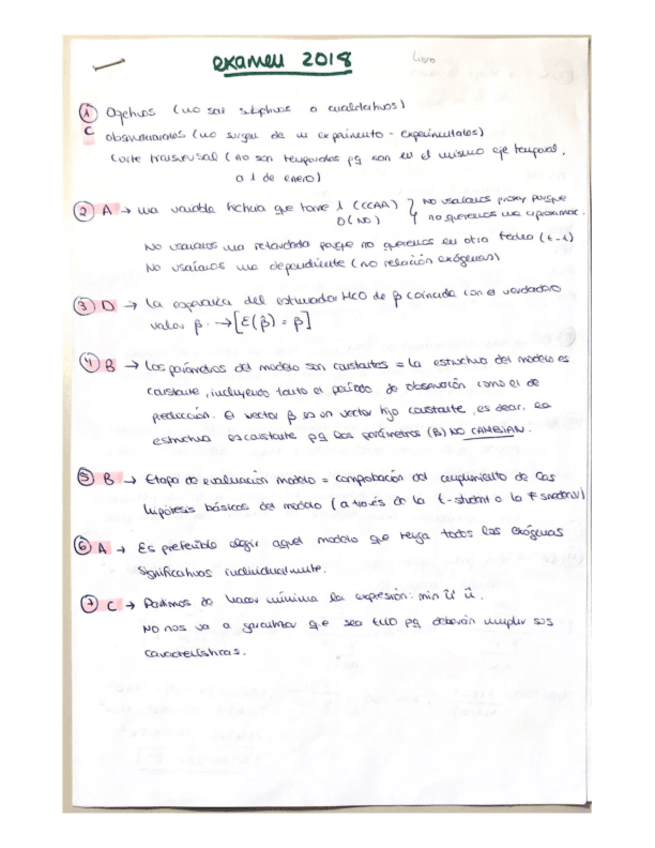 examen 2018
① Objetivos (no son subjetivos o cualitativos)
C observacionales (no surgen de un experimento - experimentales)
Corte transversal (no son temporales pq son en el mismo eje temporal,
a 1 de enero)
② A → una variable ficticia que tome 1 (CCAA) } No usaríamos proxy porque
0 (NO) no queremos una aproximac.
No usaríamos una retardada porque no queremos en otra fecha (t-1)
No usaríamos una dependiente (no relación exógenas)
③ D → La esperanza del estimador MCO de β coincide con el verdadero
valor β. → [E(β̂) = β]
④ B → Los parámetros del modelo son constantes = la estructura del modelo es
constante, incluyendo tanto el período de observación como el de
predicción. El vector β es un vector fijo constante, es decir, la
estructura es constante pq los parámetros (β) NO CAMBIAN.
⑤ B → Etapa de evaluación modelo = comprobación del cumplimiento de las
hipótesis básicas del modelo (a través de la t-student o la F snedecor)
⑥ A → Es preferible elegir aquel modelo que tenga todas las exógenas
significativas individualmente.
⑦ C → Partimos de hacer mínima la expresión: min û' û.
NO nos va a garantizar que sea ELIO pq deberán cumplir sus
características.